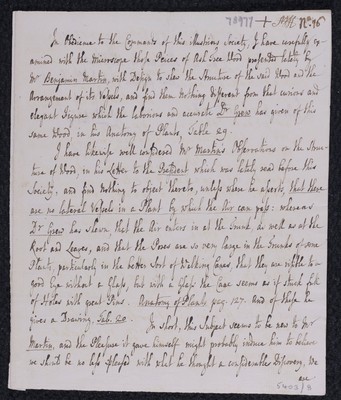 In Obedience to the Commands of this illustrious Society, I have carefully ex-
amined with the Microscope those Pieces of Ash-Tree Wood presented lately by
Mr Benjamin Martin, with Design to shew the Structure of the said Wood and the
Arrangement of its Vessels, and find them Nothing different from that curious and
elegant Figure which the laborious and accurate Dr Grew has given of this
same Wood in his Anatomy of Plants, Table 29.
I have likewise well considered Mr Martins Observations on the Struc-
ture of Wood, in his Letter to the President which was lately read before this
Society, and find Nothing to object thereto, unless where he asserts that there
are no lateral Vessels in a Plant by which the Air can pass: whereas
Dr Grew has shewn that the Air enters in at the Trunk, as well as at the
Root and Leaves, and that the Pores are so very large in the Trunks of some
Plants, particularly in the better Sort of Walking Canes, that they are visible to a
good Eye without a Glass, but with a Glass the Cane seems as if stuck full
of Holes with great Pins. Anatomy of Plants pag. 127. And of these he
gives a Drawing, Tab. 20.
In short, this Subject seems to be new to Mr
Martin, and the Pleasure it gave himself might probably induce him to believe
we should be no less pleased with what he thought a considerable Discovery, We
are